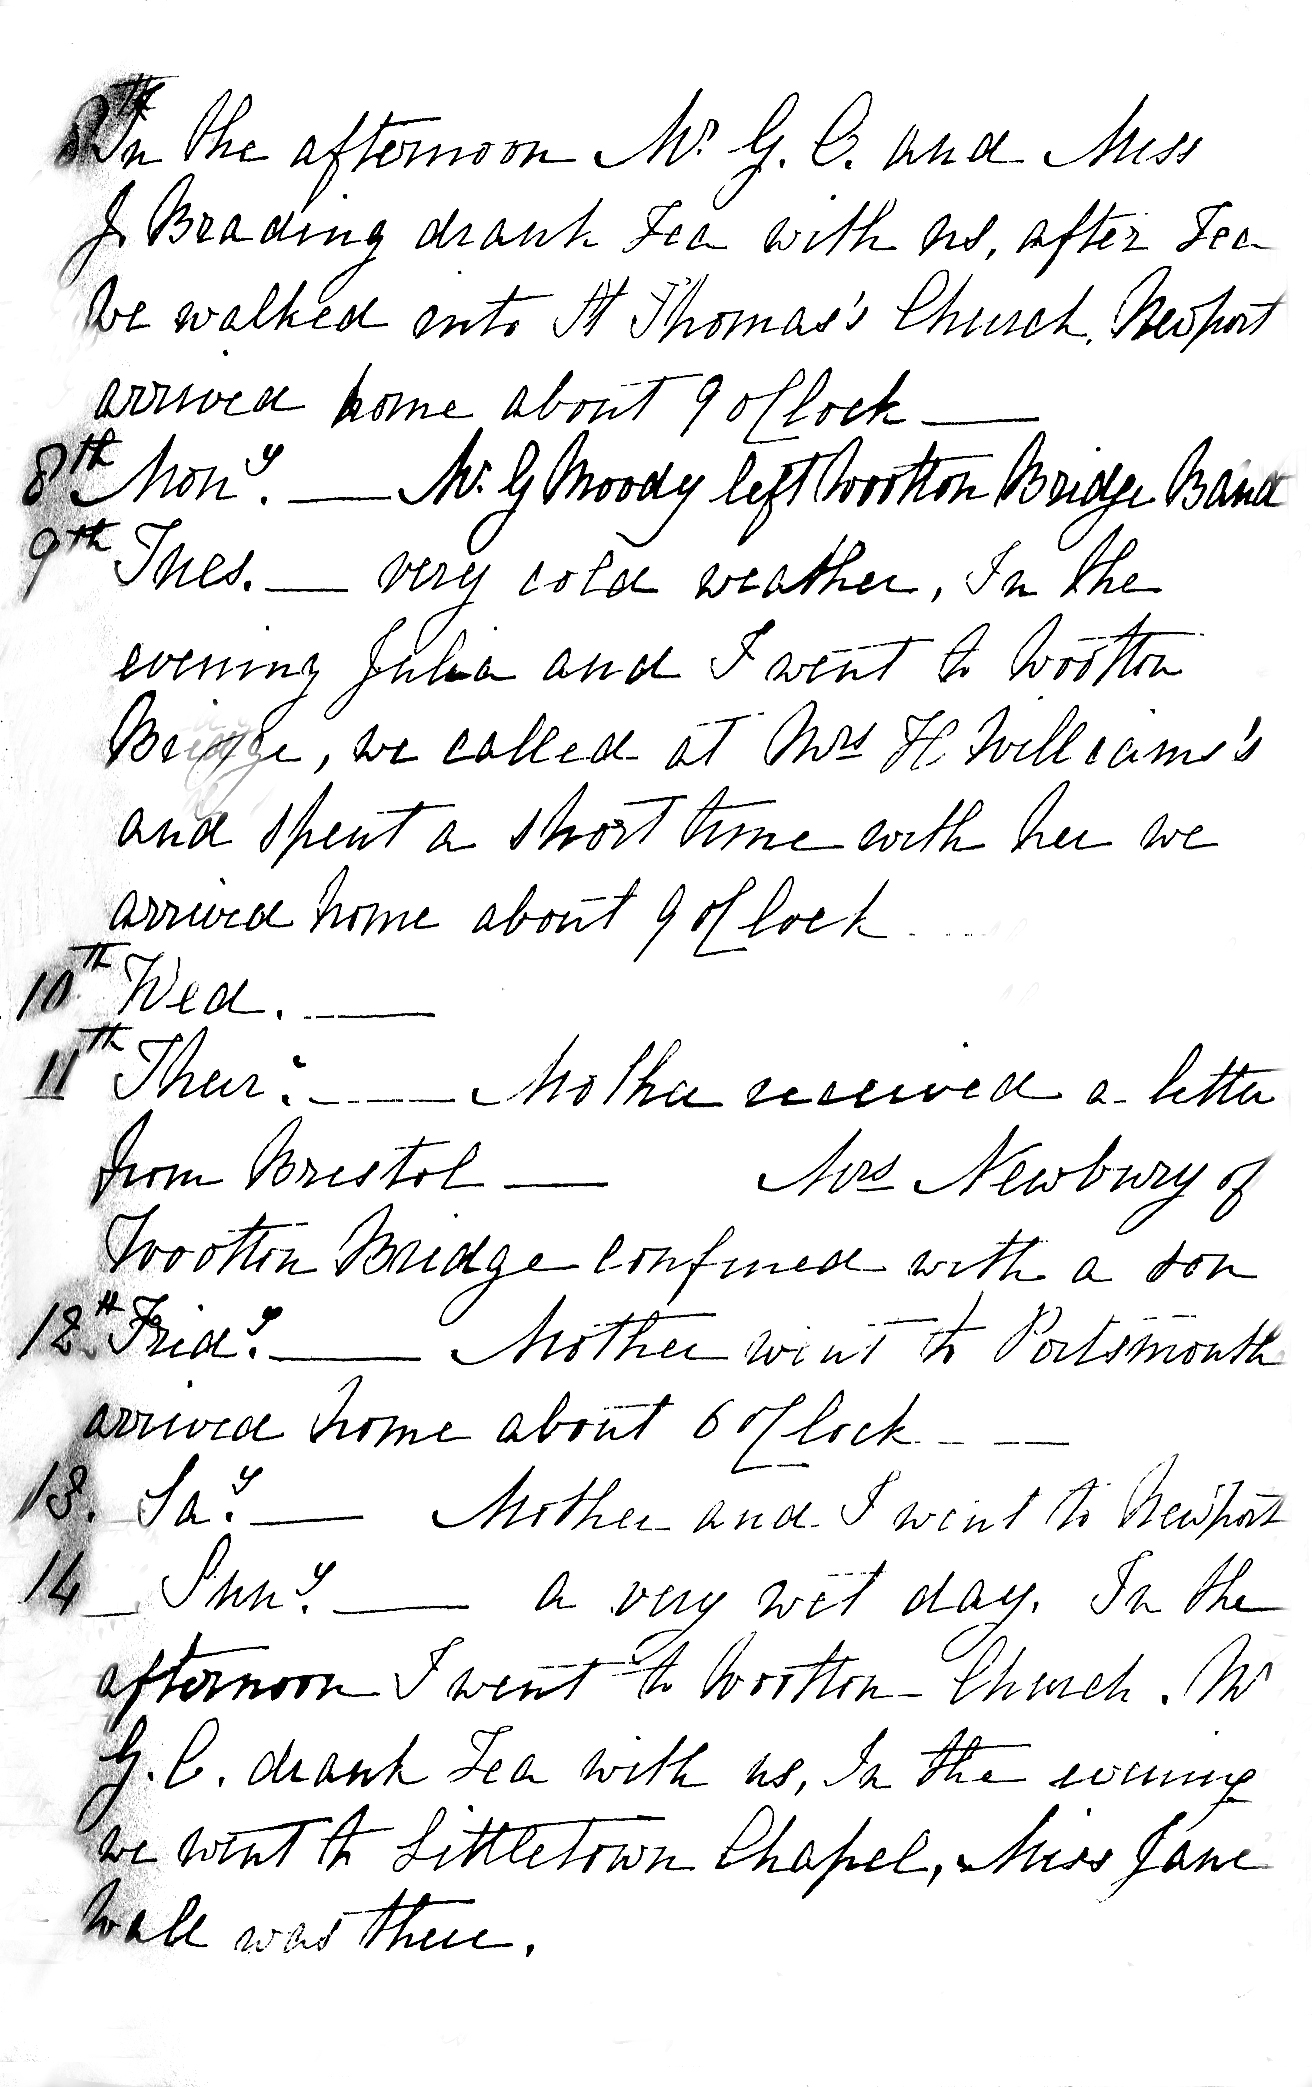 In the afternoon Mr G. C. and Miss
J. Brading drank Tea with us, after Tea
we walked into St Thomas's Church, Newport
arrived home about 9 o'Clock —
8th Mony. — Mr. G Moody left Wootton Bridge Band
9th Tues. — very cold weather, In the
evening Julia and I went to Wootton
Bridge, we called at Mrs H Williams's
and spent a short time with her we
arrived home about 9 o'Clock
10th Wed. —
11th Thurs. — Mother received a letter
from Bristol — Mrs Newbury of
Wootton Bridge confined with a son
12th Fridy. — Mother went to Portsmouth
arrived home about 6 o'Clock — —
13. Say. — Mother and I went to Newport
14 — Suny. — a very wet day. In the
afternoon I went to Wootton Church. Mr
G. C. drank Tea with us, In the evening
we went to Littletown Chapel, Miss Jane
Wall was there.